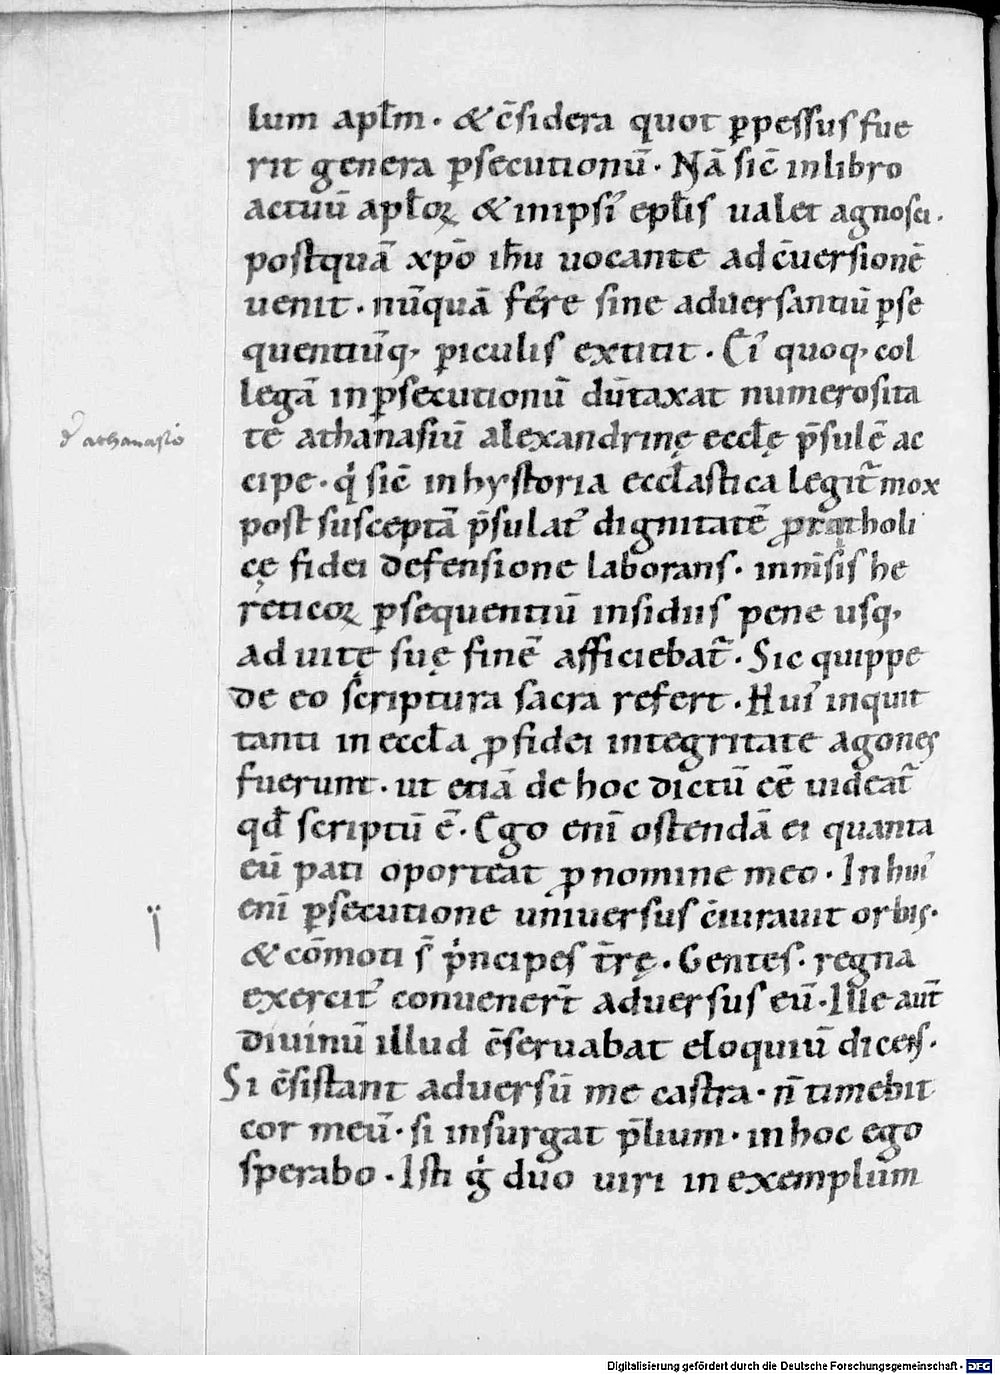 lum apl̄m · & c̄sidera quot ꝑpessus fue
rit genera ꝑsecutionū · Nā sic̄ in libro
actuū apl̄oꝝ & in ipsiꝰ epl̄is ualet agnosci ·
postquā xp̄o ih̄u uocante ad c̄uersionē
uenit · nūquā fere sine aduersantiū ꝑse
quentiūq; ꝑiculis extitit · Ciꝰ quoq; col
legā in ꝑsecutionū dūtaxat numerosita
de athanasio
te athanasiū alexandrinę eccl̄ę p̄sulē ac
cipe · qͥ sic̄ in hystoria eccl̄astica legit᷑ mox
post susceptā p̄sulatꝰ dignitatē ꝓ catholi
cę fidei defensione laborans · inm̄sis he
reticoꝝ ꝑsequentiū insidiis pene usq;
ad uitę suę finē afficiebat᷑ · Sic quippe
de eo scriptura sacra refert · Huiꝰ inquit
tanti in eccl̄a ꝓ fidei integritate agones
fuerunt · ut etiā de hoc dictū eē̄ uideat᷑
qd̄ scriptū ē · Ego enī ostendā ei quanta
eū pati oporteat ꝓ nomine meo · In huiꝰ
enī ꝑsecutione uniuersus c̄iurauit orbis ·
& cōmoti s̄ pͥncipes t̄rę · Gentes · regna
exercitꝰ conuener̄t aduersus eū · Ille aut̄
diuinū illud c̄seruabat eloquiū dicens ·
Si c̄sistant aduersū me castra · n̄ timebit
cor meū · si insurgat p̄lium · in hoc ego
sperabo · Isti gͥ duo uiri in exemplum
Digitalisierung gefördert durch die Deutsche Forschungsgemeinschaft - DFG